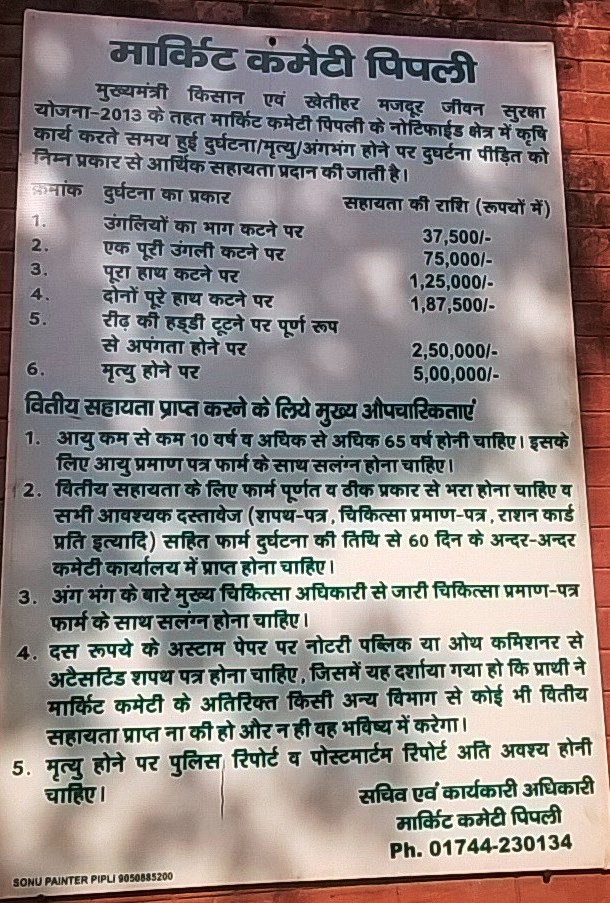 मार्किट कमेटी पिपली
मुख्यमंत्री किसान एवं खेतीहर मजदूर जीवन सुरक्षा
योजना-2013 के तहत मार्किट कमेटी पिपली के नोटिफाईड क्षेत्र में कृषि
कार्य करते समय हुई दुर्घटना/मृत्यु/अंगभंग होने पर दुघर्टना पीड़ित को
निम्न प्रकार से आर्थिक सहायता प्रदान की जाती है।
क्रमांक दुर्घटना का प्रकार सहायता की राशि (रूपयों में)
1. उंगलियों का भाग कटने पर 37,500/-
2. एक पूरी उंगली कटने पर 75,000/-
3. पूरा हाथ कटने पर 1,25,000/-
4. दोनों पूरे हाथ कटने पर 1,87,500/-
5. रीढ़ की हड्डी टूटने पर पूर्ण रूप
से अपंगता होने पर 2,50,000/-
6. मृत्यु होने पर 5,00,000/-
वितीय सहायता प्राप्त करने के लिये मुख्य औपचारिकताएं
1. आयु कम से कम 10 वर्ष व अधिक से अधिक 65 वर्ष होनी चाहिए। इसके
लिए आयु प्रमाण पत्र फार्म के साथ सलंग्न होना चाहिए।
2. वितीय सहायता के लिए फार्म पूर्णत व ठीक प्रकार से भरा होना चाहिए व
सभी आवश्यक दस्तावेज (शपथ-पत्र, चिकित्सा प्रमाण-पत्र, राशन कार्ड
प्रति इत्यादि) सहित फार्म दुर्घटना की तिथि से 60 दिन के अन्दर-अन्दर
कमेटी कार्यालय में प्राप्त होना चाहिए।
3. अंग भंग के बारे मुख्य चिकित्सा अधिकारी से जारी चिकित्सा प्रमाण-पत्र
फार्म के साथ सलंग्न होना चाहिए।
4. दस रूपये के अस्टाम पेपर पर नोटरी पब्लिक या ओथ कमिशनर से
अटैसटिड शपथ पत्र होना चाहिए, जिसमें यह दर्शाया गया हो कि प्रार्थी ने
मार्किट कमेटी के अतिरिक्त किसी अन्य विभाग से कोई भी वितीय
सहायता प्राप्त ना की हो और न ही वह भविष्य में करेगा।
5. मृत्यु होने पर पुलिस रिपोर्ट व पोस्टमार्टम रिपोर्ट अति अवश्य होनी
चाहिए।
सचिव एवं कार्यकारी अधिकारी
मार्किट कमेटी पिपली
Ph. 01744-230134
SONU PAINTER PIPLI 9050885200